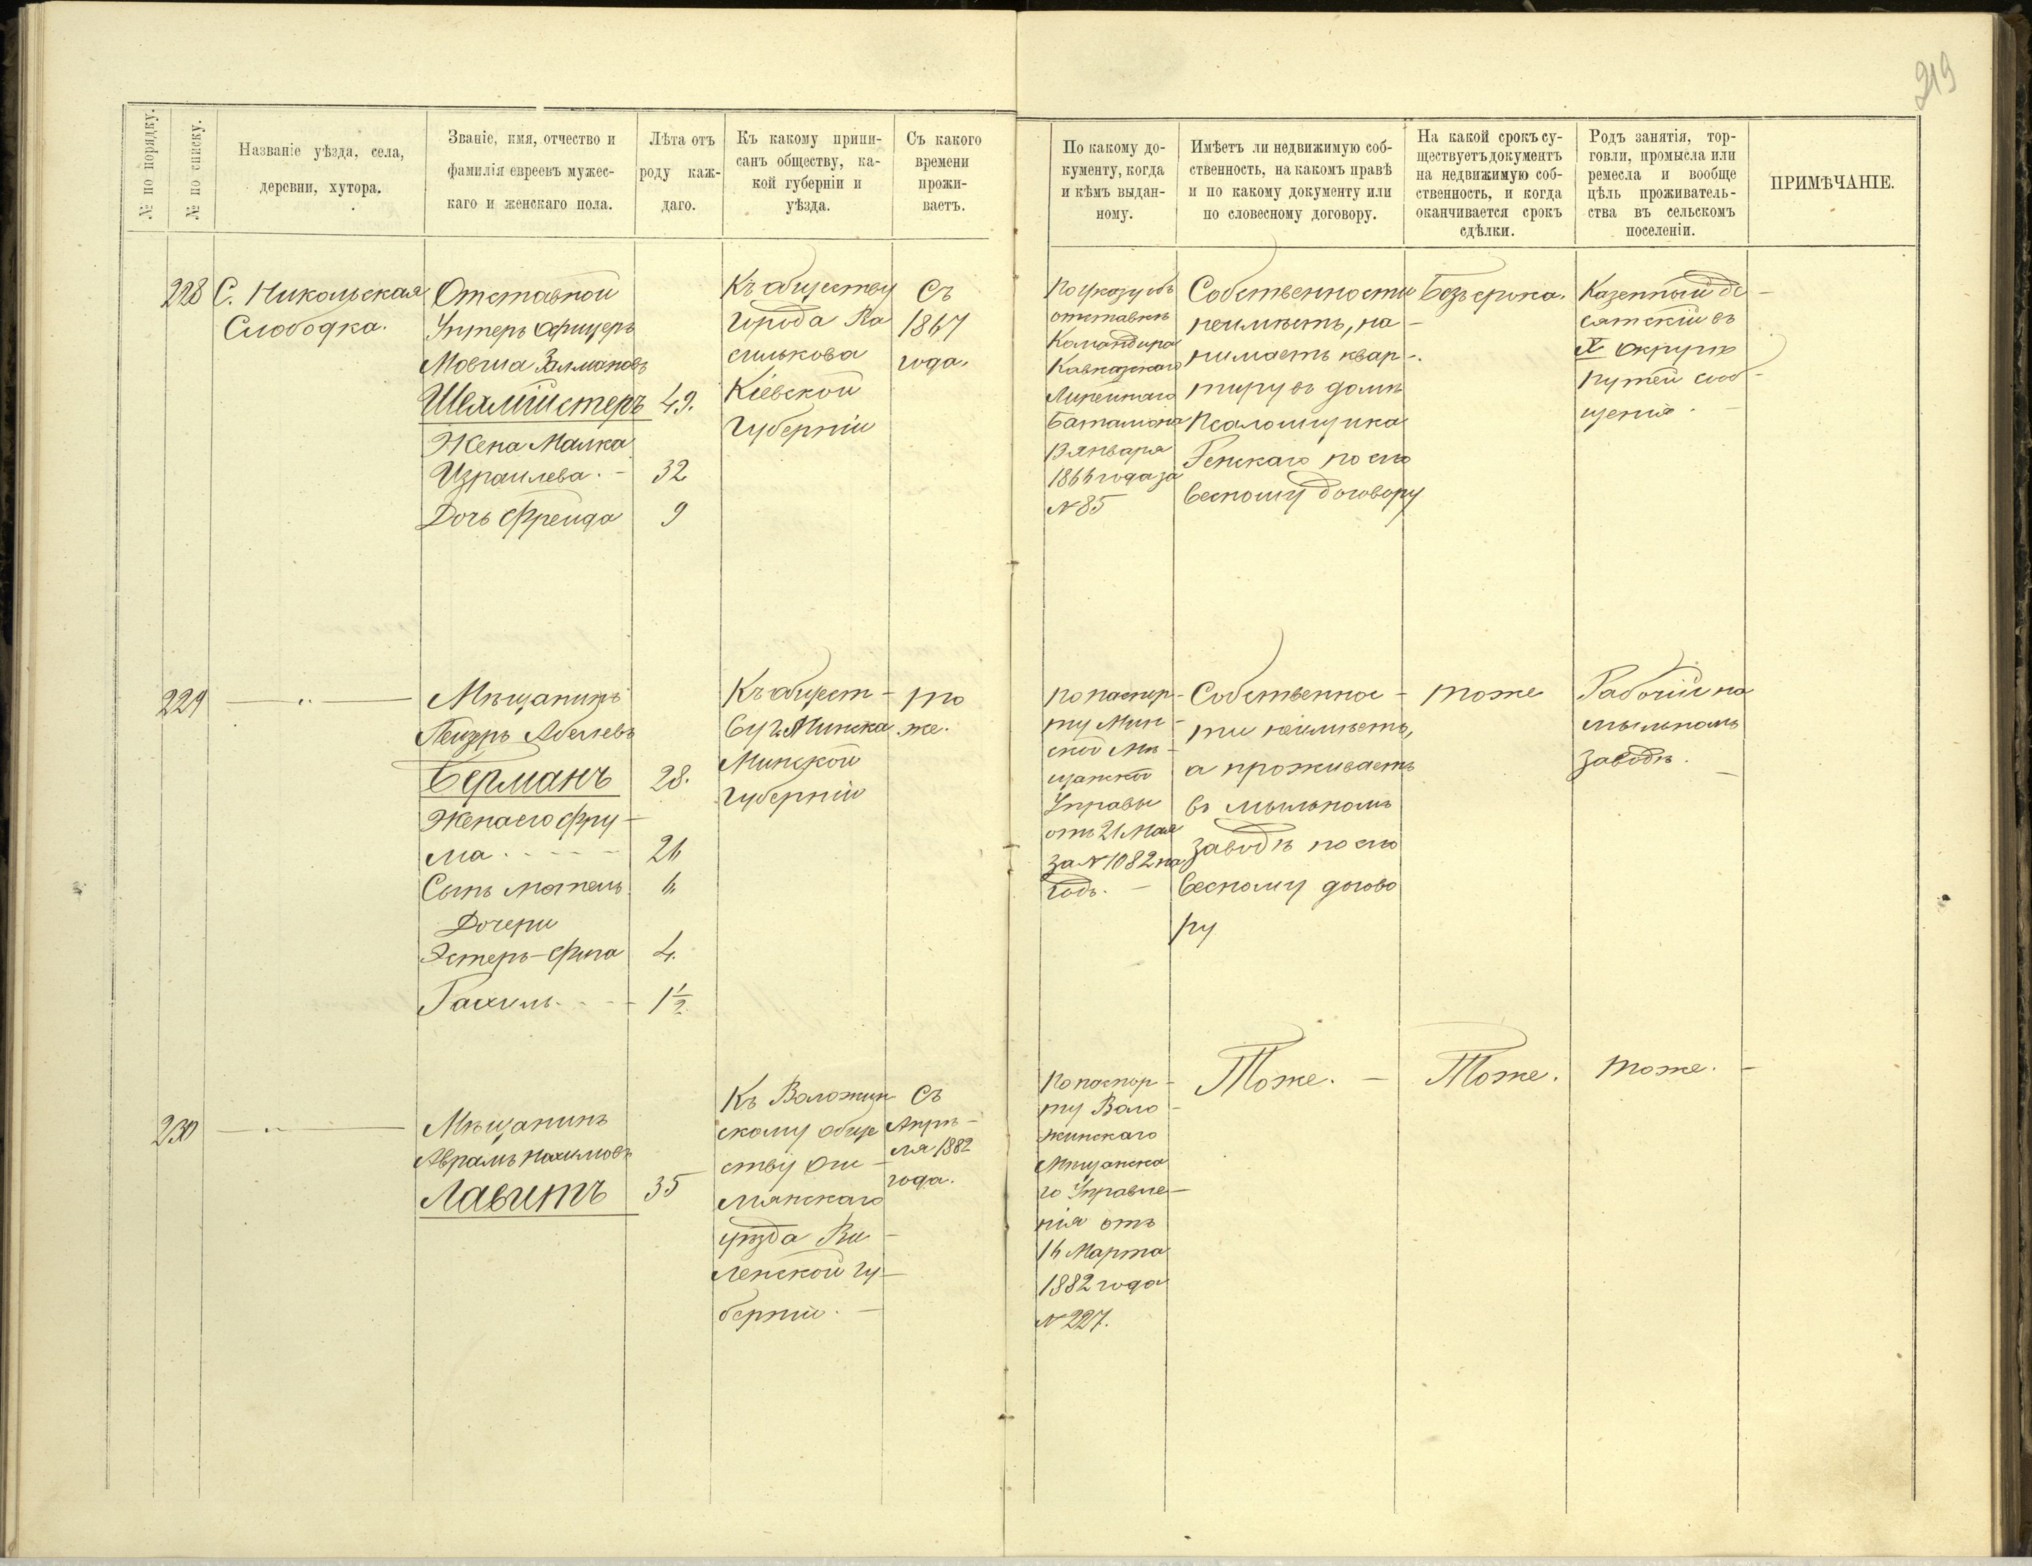 219
№ по порядку.
№ по списку.
Названіе уѣзда, села,
деревни, хутора.
Званіе, имя, отчество и
фамилія евреевъ мужес-
каго и женскаго пола.
Лѣта отъ
роду каж-
даго.
Къ какому припи-
санъ обществу, ка-
кой губерніи и
уѣзда.
Съ какого
времени
прожи-
ваетъ.
По какому до-
кументу, когда
и кѣмъ выдан-
ному.
Имѣетъ ли недвижимую соб-
ственность, на какомъ правѣ
и по какому документу или
по словесному договору.
На какой срокъ су-
ществуетъ документъ
на недвижимую соб-
ственность, и когда
оканчивается срокъ
сдѣлки.
Родъ занятія, тор-
говли, промысла или
ремесла и вообще
цѣль проживатель-
ства въ сельскомъ
поселеніи.
ПРИМѢЧАНІЕ.
228
С. Никольская
Слободка.
Отставной
Унтеръ Офицеръ
Мовша Залмановъ
Шехмистеръ 49.
Жена Малка
Израилева. - 32
Дочь Фрейда 9
Къ обществу
города Ва
силькова
Кіевской
Губерніи
Съ
1867
года.
По указу объ
отставкѣ
Командира
Кавказскаго
Линейнаго
Баталіона
Января
года за
N 85
Собственности
неимѣетъ, на -
нимаетъ квар -
тиру въ домѣ
Псаломщика
по сло
весному договору
Безъ срока.
Казенный де -
сятскій въ
X Округѣ
путей сооб -
щенія. -
229
— " —
Мѣщанинъ
Абелевъ
Берманъ 28.
Жена его Фру -
ма . - - - 26
Сынъ Мотель 6
Дочери
Эстеръ-Фига 4.
Рахиль. - - - 1½
Къ общест -
ву г. Минска
Минской
Губерніи
то
же.
По паспор -
ту Мин -
ской Мѣ -
щанской
Управы
отъ 21 Мая
за N 1082 на
годъ. -
Собственнос -
ти неимѣетъ,
а проживаетъ
въ мыльномъ
заводѣ по сло
весному догово
ру
тоже
Рабочій на
мыльномъ
заводѣ. -
230
— " —
Мѣщанинъ
Аврамъ Нохимовъ
Лавитъ 35
Къ Воложин
скому обще
ству Ош -
мянскаго
уѣзда Ви -
ленской гу -
берніи. -
Съ
Апрѣ -
ля 1882
года.
По паспор -
ту Воло -
жинскаго
Мѣщанска
го Управле -
нія отъ
16 Марта
1882 года
N 227.
Тоже. -
Тоже.
тоже. -